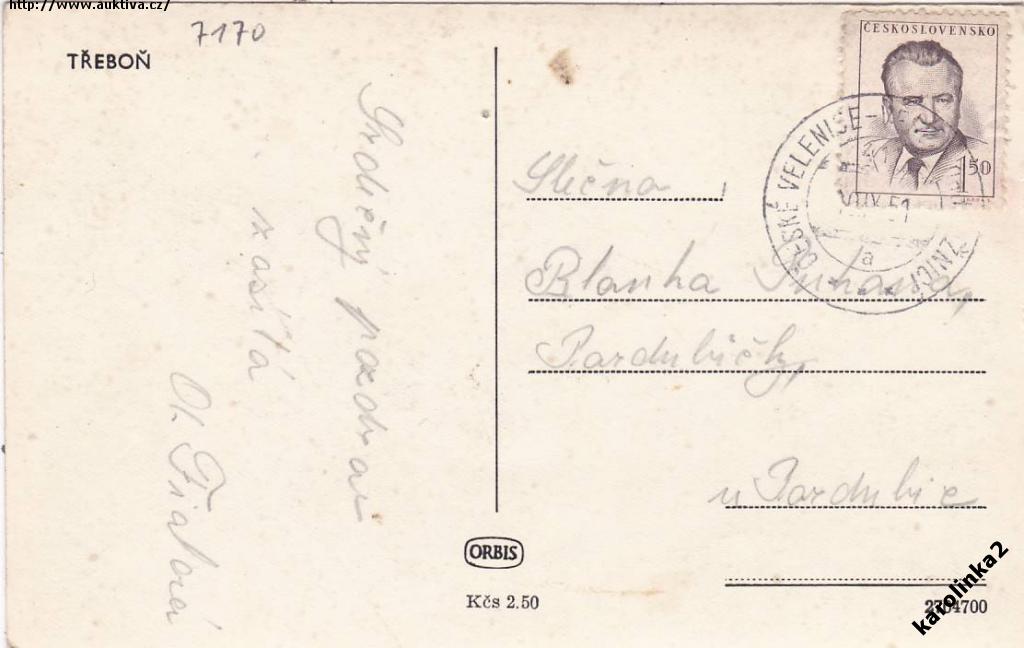 http://www.auktiva.cz/
7170
TŘEBOŇ
Srdečný pozdrav
zasílá
Ol. Fialová
ČESKOSLOVENSKO
1 50
ČESKÉ VELENISE
IX 51
a
Slečna
Blanka
Pardubičky,
u Pardubic
ORBIS
Kčs 2.50
4700
karolinka2